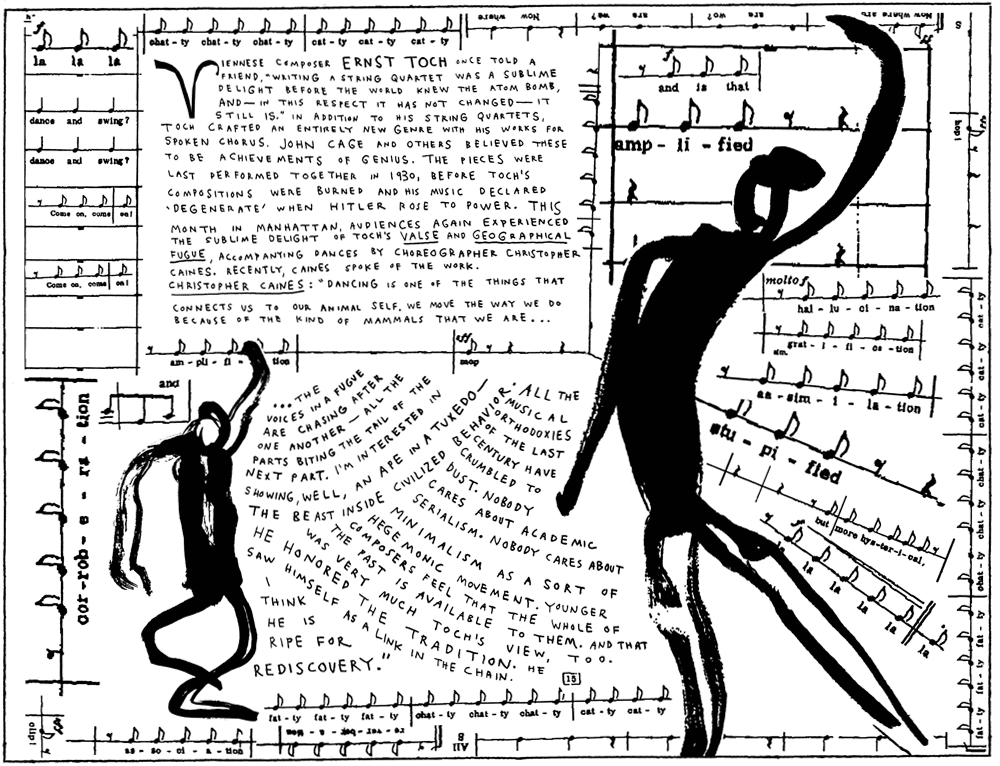 Now where
we?
are
wo?
are
Now where are
ff
S
f
la la la
chat - ty chat - ty chat - ty cat - ty cat - ty cat - ty
dance and swing?
dance and swing?
Come on, come on!
Come on, come on!
VIENNESE COMPOSER ERNST TOCH ONCE TOLD A
FRIEND, "WRITING A STRING QUARTET WAS A SUBLIME
DELIGHT BEFORE THE WORLD KNEW THE ATOM BOMB,
AND — IN THIS RESPECT IT HAS NOT CHANGED — IT
STILL IS." IN ADDITION TO HIS STRING QUARTETS,
TOCH CRAFTED AN ENTIRELY NEW GENRE WITH HIS WORKS FOR
SPOKEN CHORUS. JOHN CAGE AND OTHERS BELIEVED THESE
TO BE ACHIEVEMENTS OF GENIUS. THE PIECES WERE
LAST PERFORMED TOGETHER IN 1930, BEFORE TOCH'S
COMPOSITIONS WERE BURNED AND HIS MUSIC DECLARED
'DEGENERATE' WHEN HITLER ROSE TO POWER. THIS
MONTH IN MANHATTAN, AUDIENCES AGAIN EXPERIENCED
THE SUBLIME DELIGHT OF TOCH'S VALSE AND GEOGRAPHICAL
FUGUE, ACCOMPANYING DANCES BY CHOREOGRAPHER CHRISTOPHER
CAINES. RECENTLY, CAINES SPOKE OF THE WORK.
CHRISTOPHER CAINES: "DANCING IS ONE OF THE THINGS THAT
CONNECTS US TO OUR ANIMAL SELF. WE MOVE THE WAY WE DO
BECAUSE OF THE KIND OF MAMMALS THAT WE ARE...
f
and is that
amp - li - fied
hop!
molto f
hal - lu - ci - na - tion
sim.
grat - i - fi - ca - tion
as - sim - i - la - tion
stu - pi - fied
but more hys-ter-i-cal,
la la la la la
am - pli - fi - tion
ff
mop
and
cor - rob - e - ra - tion
...THE
VOICES IN A FUGUE
ARE CHASING AFTER
ONE ANOTHER — ALL THE
PARTS BITING THE TAIL OF THE
NEXT PART. I'M INTERESTED IN
SHOWING, WELL, AN APE IN A TUXEDO —
THE BEAST INSIDE CIVILIZED BEHAVIOR. ALL THE
MUSICAL
ORTHODOXIES
OF THE LAST
CENTURY HAVE
CRUMBLED TO
DUST. NOBODY
CARES ABOUT ACADEMIC
SERIALISM. NOBODY CARES ABOUT
MINIMALISM AS A SORT OF
HEGEMONIC MOVEMENT. YOUNGER
COMPOSERS FEEL THAT THE WHOLE OF
THE PAST IS AVAILABLE TO THEM. AND THAT
WAS VERY MUCH TOCH'S VIEW, TOO.
HE HONORED THE TRADITION. HE
SAW HIMSELF AS A LINK IN THE CHAIN.
I
THINK
HE IS
RIPE FOR
REDISCOVERY."
15
fat - ty fat - ty fat - ty chat - ty chat - ty chat - ty cat - ty cat - ty
clip!
as - so - ci - a - tion
re - ver - ber - a - tion
All
B
fat - ty fat - ty fat - ty chat - ty chat - ty chat - ty cat - ty cat - ty cat - ty